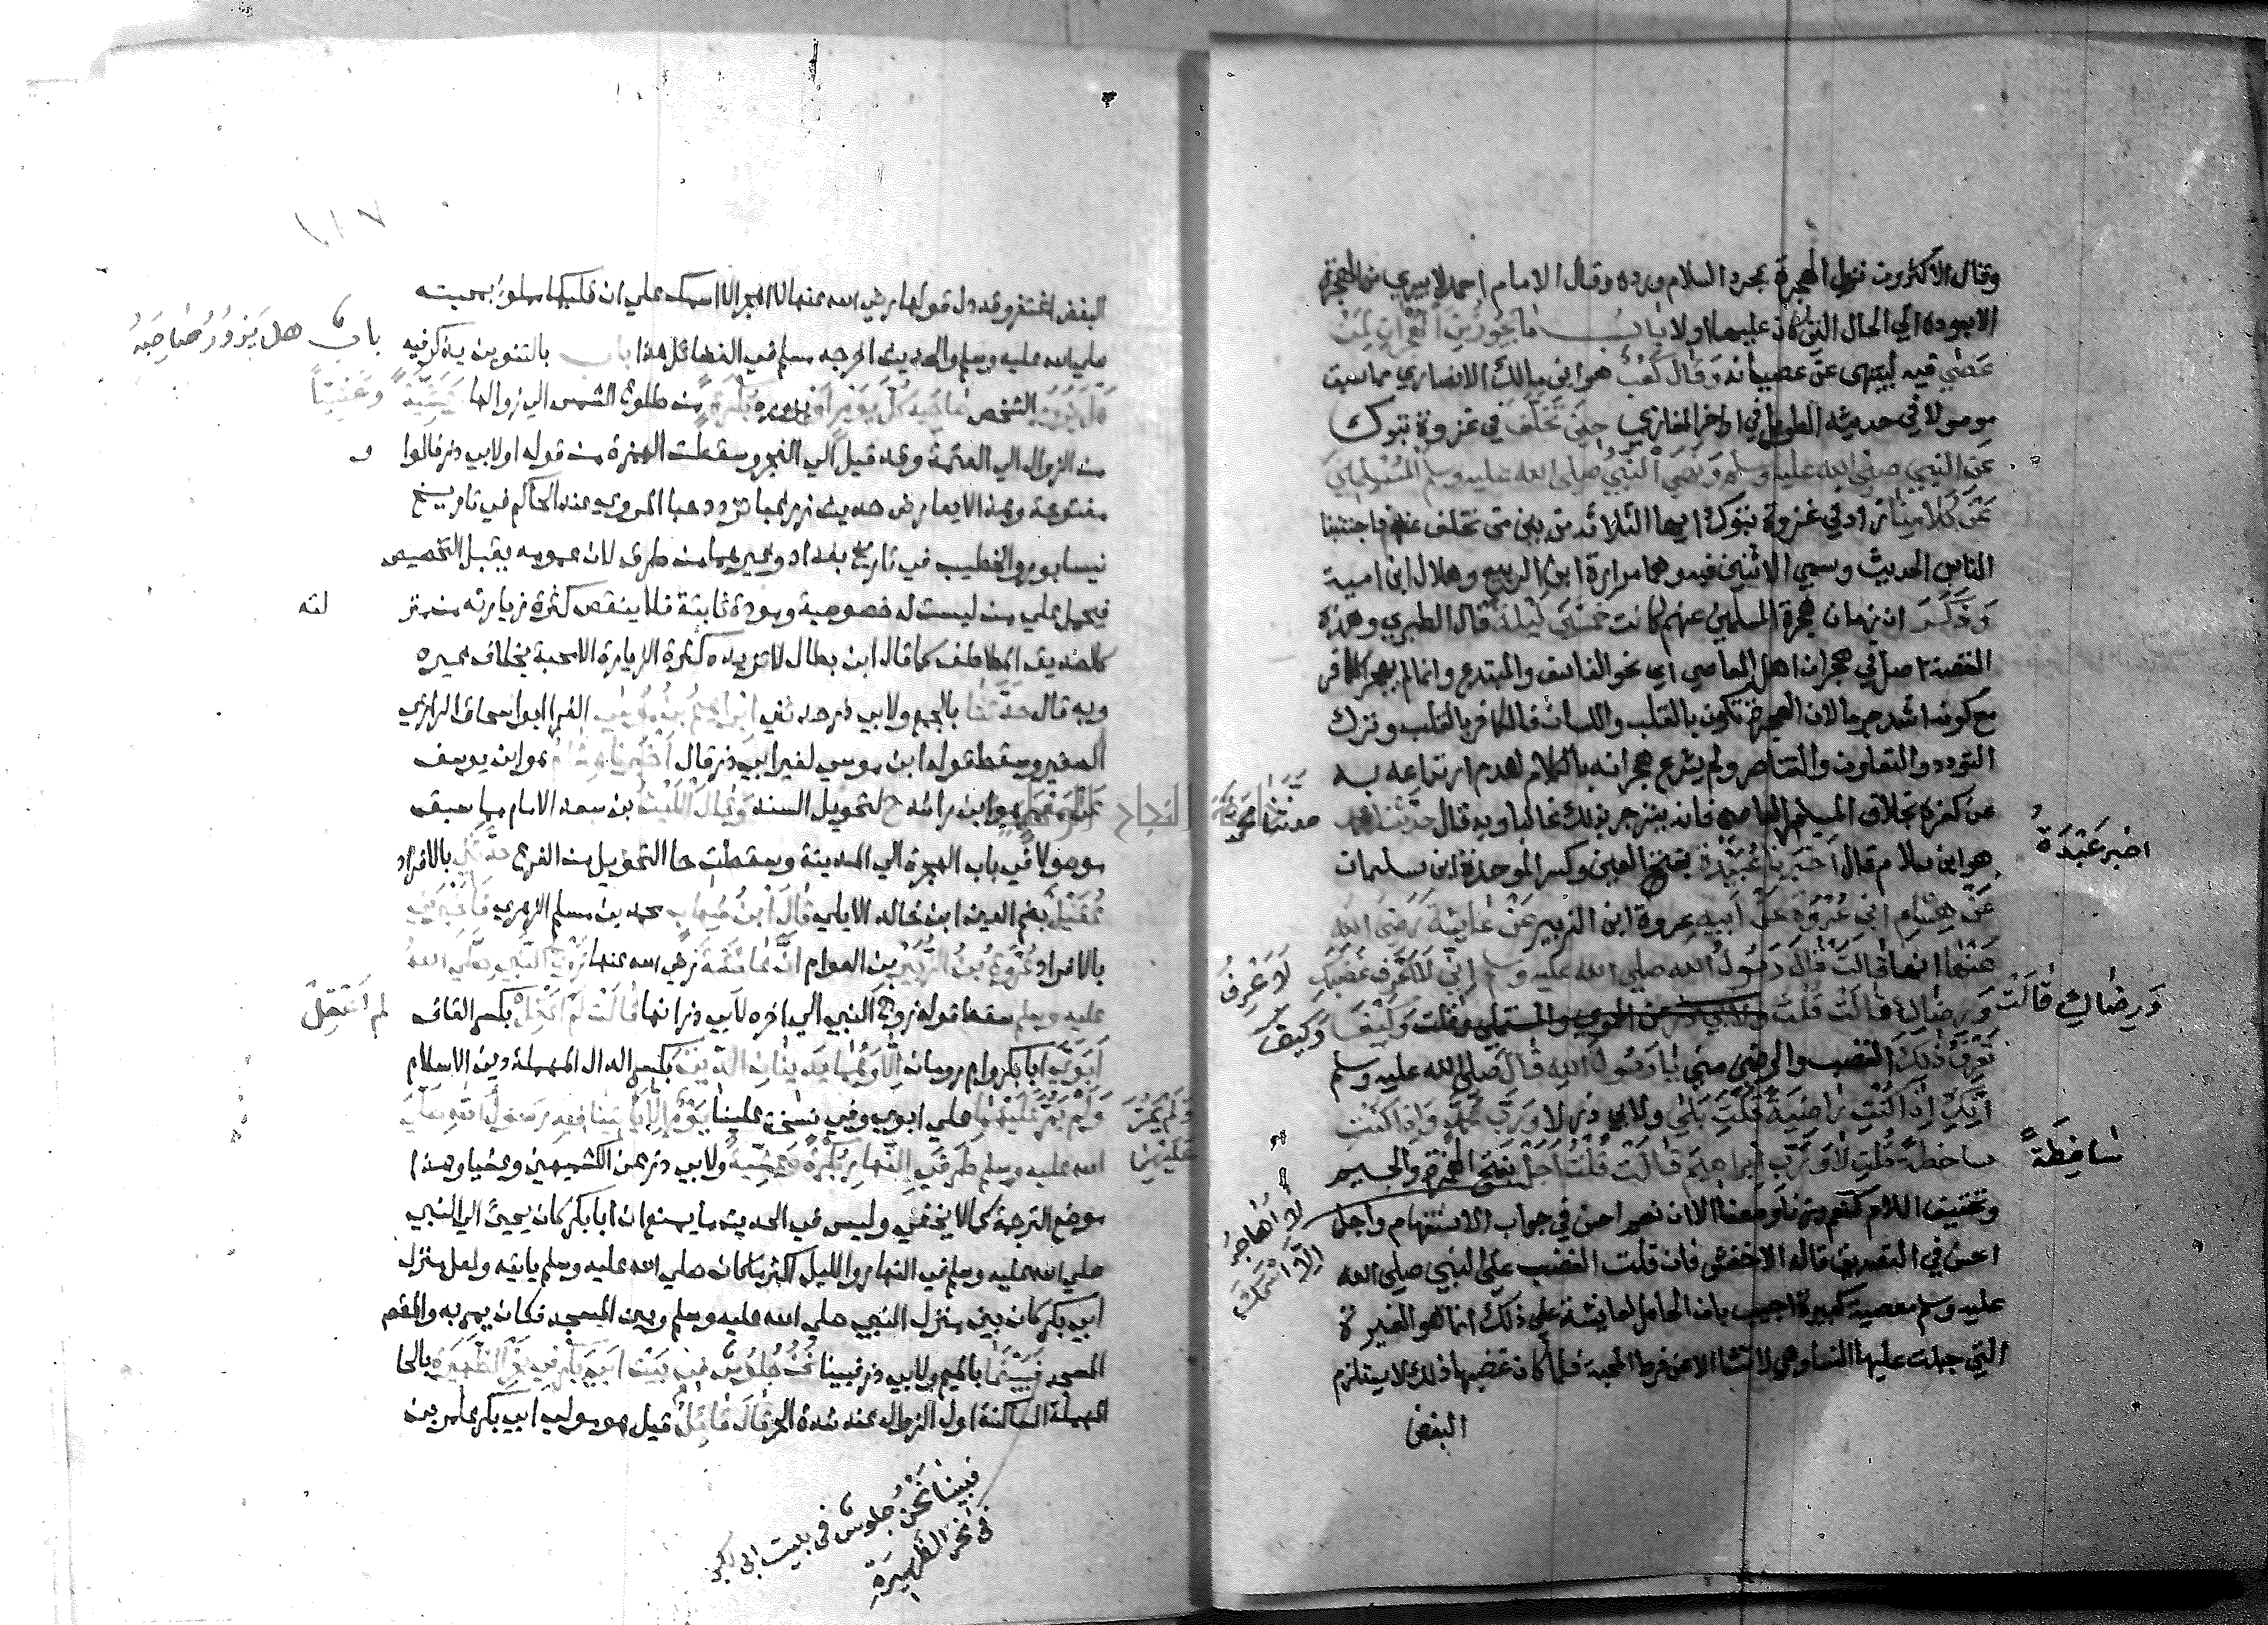 وقال الاكثرون تزول الهجرة بمجرد السلام ورده وقال الامام احمد لا يبرئ من الهجرة
الا بعوده الى الحال التي كان عليها اولا باب ما يجوز من الهجران لمن
عصى فيه لينتهى عن عصيانه وقال كعب هو ابن مالك الانصاري مما سبق
موصولا في حديثه الطويل في اواخر المغازي حين تخلف في غزوة تبوك
عن النبي صلى الله عليه وسلم ونهى النبي صلى الله عليه وسلم المسلمين
عن كلامنا زاد في غزوة تبوك ايها الثلاثة من بين من تخلف عنه فاجتنبنا
الناس الحديث وسمي الاثنين فيه وهما مرارة ابن الربيع وهلال ابن امية
وذكر ان زمان هجرة المسلمين عنهم كانت خمسين ليلة قال الطبري وهذه
القصة اصل في هجران اهل المعاصي اي نحو الفاسق والمبتدع وانما لم يهجر الكافر
مع كونه اشد جرما لان الهجرة تكون بالقلب واللسان فالكافر بالقلب وترك
التودد والتعاون والتناصر ولم يشرع هجرانه بالكلام لعدم ارتداعه به
عن كفره بخلاف المسلم العاصي فانه ينزجر بذلك غالبا وبه قال حدثنا محمد
حدثنا محمد
هو ابن سلام قال اخبرنا عبدة بفتح العين وكسر الموحدة ابن سليمان
اخبر عبدة
عن هشام ابن عروة عن ابيه عروة ابن الزبير عن عايشة رضي الله
عنها انها قالت قال رسول الله صلى الله عليه وسلم اني لاعرف غضبك
لاعرف
ورضاك قالت قلت ولابي ذر عن الحموي والمستملي وقلت وكيف
ورضاك قالت
وكيف
تعرف ذلك الغضب والرضى مني يا رسول الله قال صلى الله عليه وسلم
انك اذا كنت راضية قلت بلى ولابي ذر لا ورب محمد واذا كنت
ساخطة قلت لا ورب ابراهيم قالت قلت اجل بفتح الهمزة والجيم
ساخطة
وتخفيف اللام كنعم وزنا ومعنا الا ان نعم احسن في جواب الاستفهام واجل
لا اهاجر الا اسمك
احسن في التصديق قاله الاخفش فان قلت الغضب على النبي صلى الله
عليه وسلم معصية كبيرة اجيب بان الحامل لعايشة على ذلك انما هو الغيرة
التي جبلت عليها النسا وهي لا تنشا الا عن فرط المحبة فلما كان غضبها ذلك لا يستلزم
البغض
البغض اغتفر وقد دل قولها رضي الله عنها لا اهجر الا اسمك على ان قلبها مملو بمحبته
صلى الله عليه وسلم والحديث اخرجه مسلم في الفضائل هذا باب بالتنوين يذكر فيه
باب هل يزور صاحبه
هل يزور الشخص صاحبه كل يوم او بكرة من طلوع الشمس الى زوالها وعشية
وعشيا
من الزوال الى العتمة وقد قيل الى الفجر وسقطت الهمزة من قوله او لابي ذر فالواو
مفتوحة وهذا لا يعارض حديث زر غبا تزدد حبا المروي عند الحاكم في تاريخ
نيسابور والخطيب في تاريخ بغداد وغيرهما من طرق لان عمومه يقبل التخصيص
فيحمل على من ليست له خصوصية ومودة ثابتة فلا ينقص كثرة زيارته من منزلته
كالصديق الملاطف كما قال ابن بطال لا تزيده كثرة الزيارة الا محبة بخلاف غيره
وبه قال حدثنا بالجمع ولابي ذر حدثني ابراهيم بن موسى الفرا ابو اسحاق الرازي
الصغير وسقط قوله ابن موسى لغير ابي ذر قال اخبرنا هشام هو ابن يوسف
عن معمر هو ابن راشد ح لتحويل السند وقال الليث بن سعد الامام مما سبق
موصولا في باب الهجرة الى المدينة وسقطت حا التحويل من الفرع حدثني بالافراد
عقيل بضم العين ابن خالد الايلي قال ابن شهاب محمد بن مسلم الزهري فاخبرني
بالافراد عروة بن الزبير بن العوام ان عائشة رضي الله عنها زوج النبي صلى الله
عليه وسلم سقط قوله زوج النبي الى اخره لابي ذر انها قالت لم اعقل بكسر القاف
لم اعقل
ابوي ابا بكر وام رومان الا وهما يدينان الدين بكسر الدال المهملة دين الاسلام
ولم يمر عليهما على ابوي وفي نسخة علينا يوم الا ياتينا فيه رسول الله صلى
ولم يمر
علينا
الله عليه وسلم طرفي النهار بكرة وعشية ولابي ذر عن الكشميهني وعشيا وهذا
موضع الترجمة كما لا يخفى وليس في الحديث ما يمنع ان ابا بكر كان يجيئ الى النبي
صلى الله عليه وسلم في النهار والليل اكثر مما كان صلى الله عليه وسلم ياتيه ولعل منزل
ابي بكر كان بين منزل النبي صلى الله عليه وسلم وبين المسجد فكان يمر به والمقصد
المسجد فبينما بالميم ولابي ذر فبينا نحن جلوس في بيت ابي بكر في نحر الظهيرة بالحا
المهملة الساكنة اول الزوال عند شدة الحر قال قائل قيل هو مولى ابي بكر عامر بن
فبينا نحن جلوس في بيت ابى بكر
في نحر الظهيرة